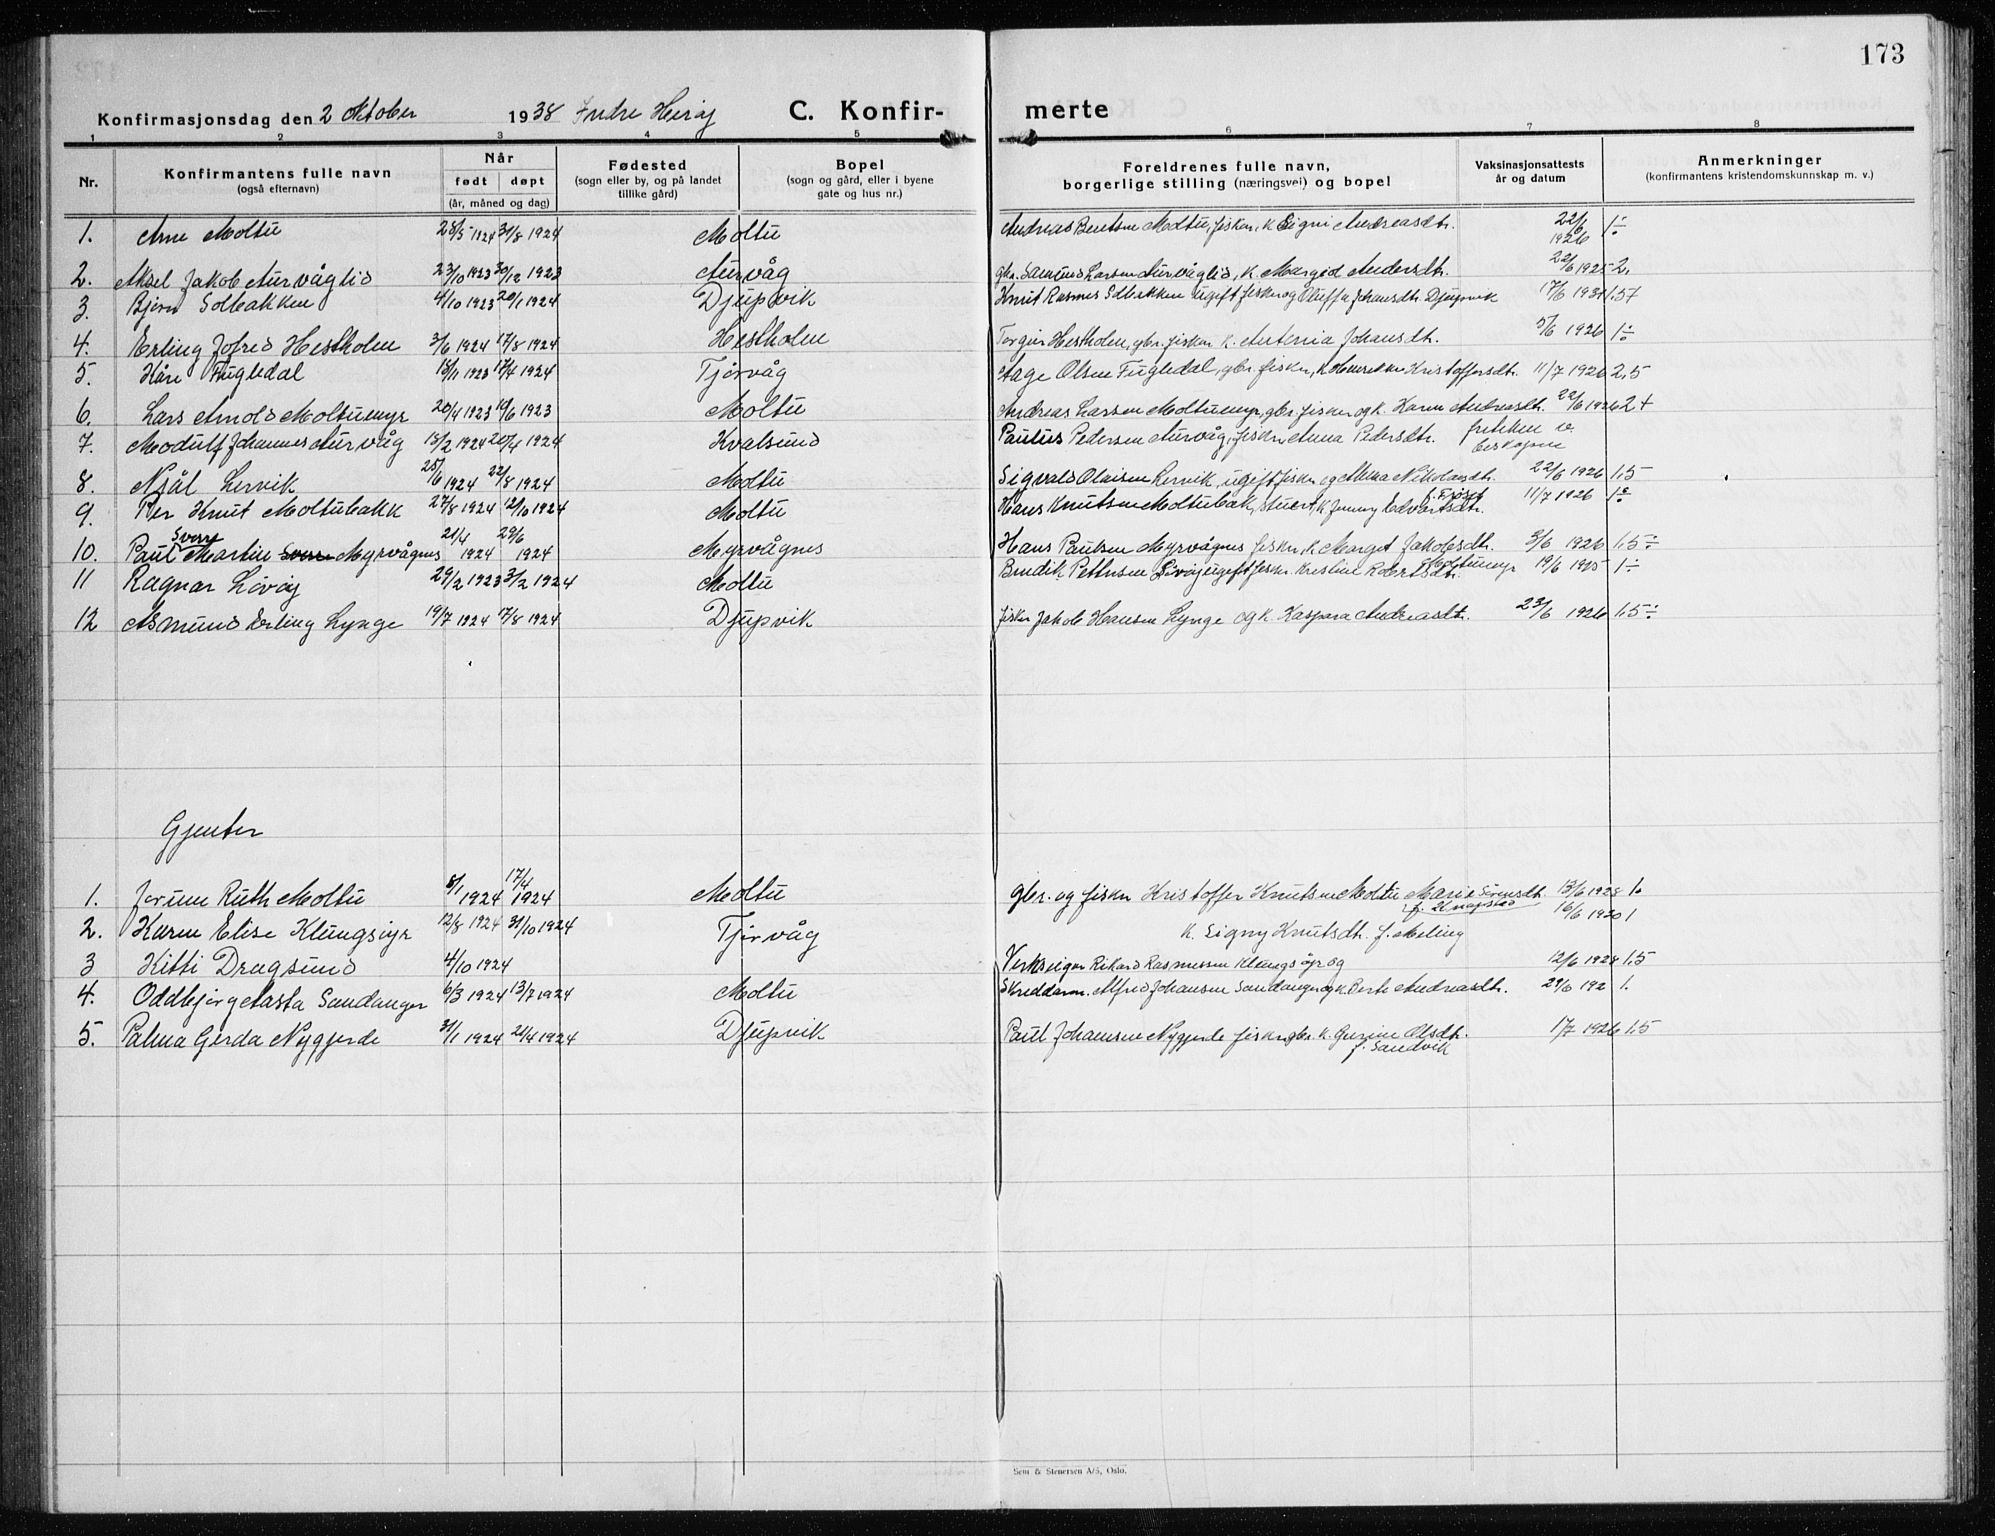 173
Konfirmasjonsdag den 2 oktober 1938 Indre Herøy C. Konfir- merte
1 2 3 4 5 6 7 8
Nr. Konfirmantens fulle navn (også efternavn) Når født døpt (år, måned og dag) Fødested (sogn eller by, og på landet tillike gård) Bopel (sogn og gård, eller i byene gate og hus nr.) Foreldrenes fulle navn, borgerlige stilling (næringsvei) og bopel Vaksinasjonsattests år og datum Anmerkninger (konfirmantens kristendomskunnskap m. v.)
1. Arne Moltu 28/5 1924 31/8 1924 Moltu Andreas Bentsen Moltu, fisker, k. Signi Andreasdtr. 22/6 1926 1÷
2. Aksel Jakob Aurvåglid 23/10 1923 30/12 1923 Aurvåg Larsen Aurvåglid, k. Margid Andersdtr. 22/6 1925 2.
3. Bjørn Solbakken 4/10 1923 20/1 1924 Djupvik Knut Rasmus Solbakken ugift fisker og Oluffa Johansdtr. Djupvik 17/6 1931 1.5+
4. Erling Jofred Hestholm 3/6 1924 17/8 1924 Hestholm Torgeir Hestholm, gbr. fisker k. Antonia Johansdtr. 5/6 1926 1÷
5. Kåre Fugledal 18/11 1923 17/4 1924 Tjørvåg Aage Olsen Fugledal, gbr. fisker, k. Kristoffersdtr. 11/7 1926 2,5
6. Lars Arnold Moltumyr 20/4 1923 10/6 1923 Moltu Andreas Larsen Moltumyr, gbr. fisker og k. Karen Andreasdtr. 22/6 1926 2+
7. Modulf Johannes Aurvåg 18/2 1924 20/4 1924 Kvalsund Paulus Pedersen Aurvåg, fisker, Anna Pedersdtr. fritken v. biskopen
8. Njål Lervik 25/6 1924 22/8 1924 Moltu Sigvald Olaisen Lervik, ugift fisker og Mina Nikolaisdtr. 22/6 1926 1.5
9. Per Knut Moltubakk 27/8 1924 12/10 1924 Moltu Hans Knutsen Moltubak, stuert, k. Jenny Edvartsdtr. 11/7 1926 1÷
10. Paul Martin Sverre Myrvågnes 21/4 1924 29/6 1924 Myrvågnes Hans Paulsen Myrvågnes fisker, k. Marget Jakobsdtr. 3/6 1926 1.5÷
11 Ragnar Løvøy 29/2 1923 3/2 1924 Moltu Bendik Pettersen Løvøy ugift fisker Kristine Robertsdtr. Moltumyr 19/6 1925 1÷
12 Asmund Erling Lynge 19/7 1924 17/8 1924 Djupvik fisker Jakob Hansen Lynge og k. Kaspara Andreasdtr. 23/6 1926 1.5÷
Gjenter
1. Jorunn Ruth Moltu 8/1 1924 17/4 1924 Moltu gbr. og fisker Kristoffer Knutsen Moltu Marie Sørensdtr. 13/6 1928 1.
2. Karen Elise Klungsøyr 12/8 1924 31/10 1924 Tjørvåg k. Signy Knutsdtr. f. Meling 16/6 1920 1
3 Kitti Dragsund 4/10 1924 Verkseigar Rikard Rasmussen Klungsøyr og 12/6 1928 1.5
4. Oddbjørg Aasta Sandanger 6/3 1924 13/7 1924 Moltu Skreddarm. Alfred Johansen Sandanger og k. Berte Andreasdtr. 29/6 192 1.
5. Palma Gerda Nygjerde 31/1 1924 21/4 1924 Djupvik Paul Johansen Nygjerde fisker gbr. k. Gurine Olsdtr. f. Sandvik 1/7 1926 1.5
Sem & Stenersen A/S, Oslo.